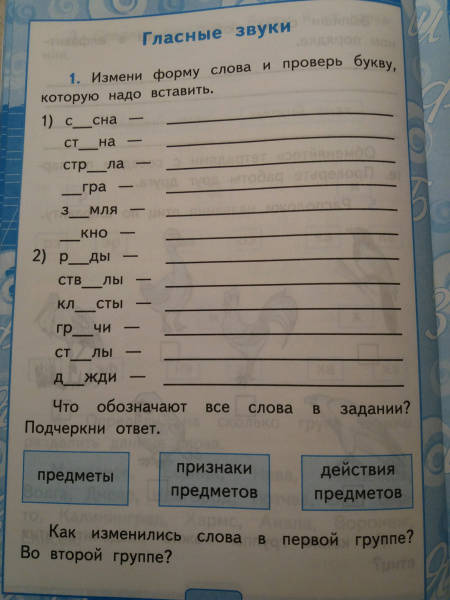 Гласные звуки
1. Измени форму слова и проверь букву,
которую надо вставить.
1) с__сна —
ст__на —
стр__ла —
__гра —
з__мля —
__кно —
2) р__ды —
ств__лы —
кл__сты —
гр__чи —
ст__лы —
д__жди —
Что обозначают все слова в задании?
Подчеркни ответ.
предметы
признаки
предметов
действия
предметов
Как изменились слова в первой группе?
Во второй группе?